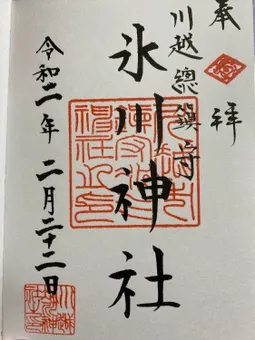 奉拝
川越總鎮守
氷川神社
令和二年 二月二十二日